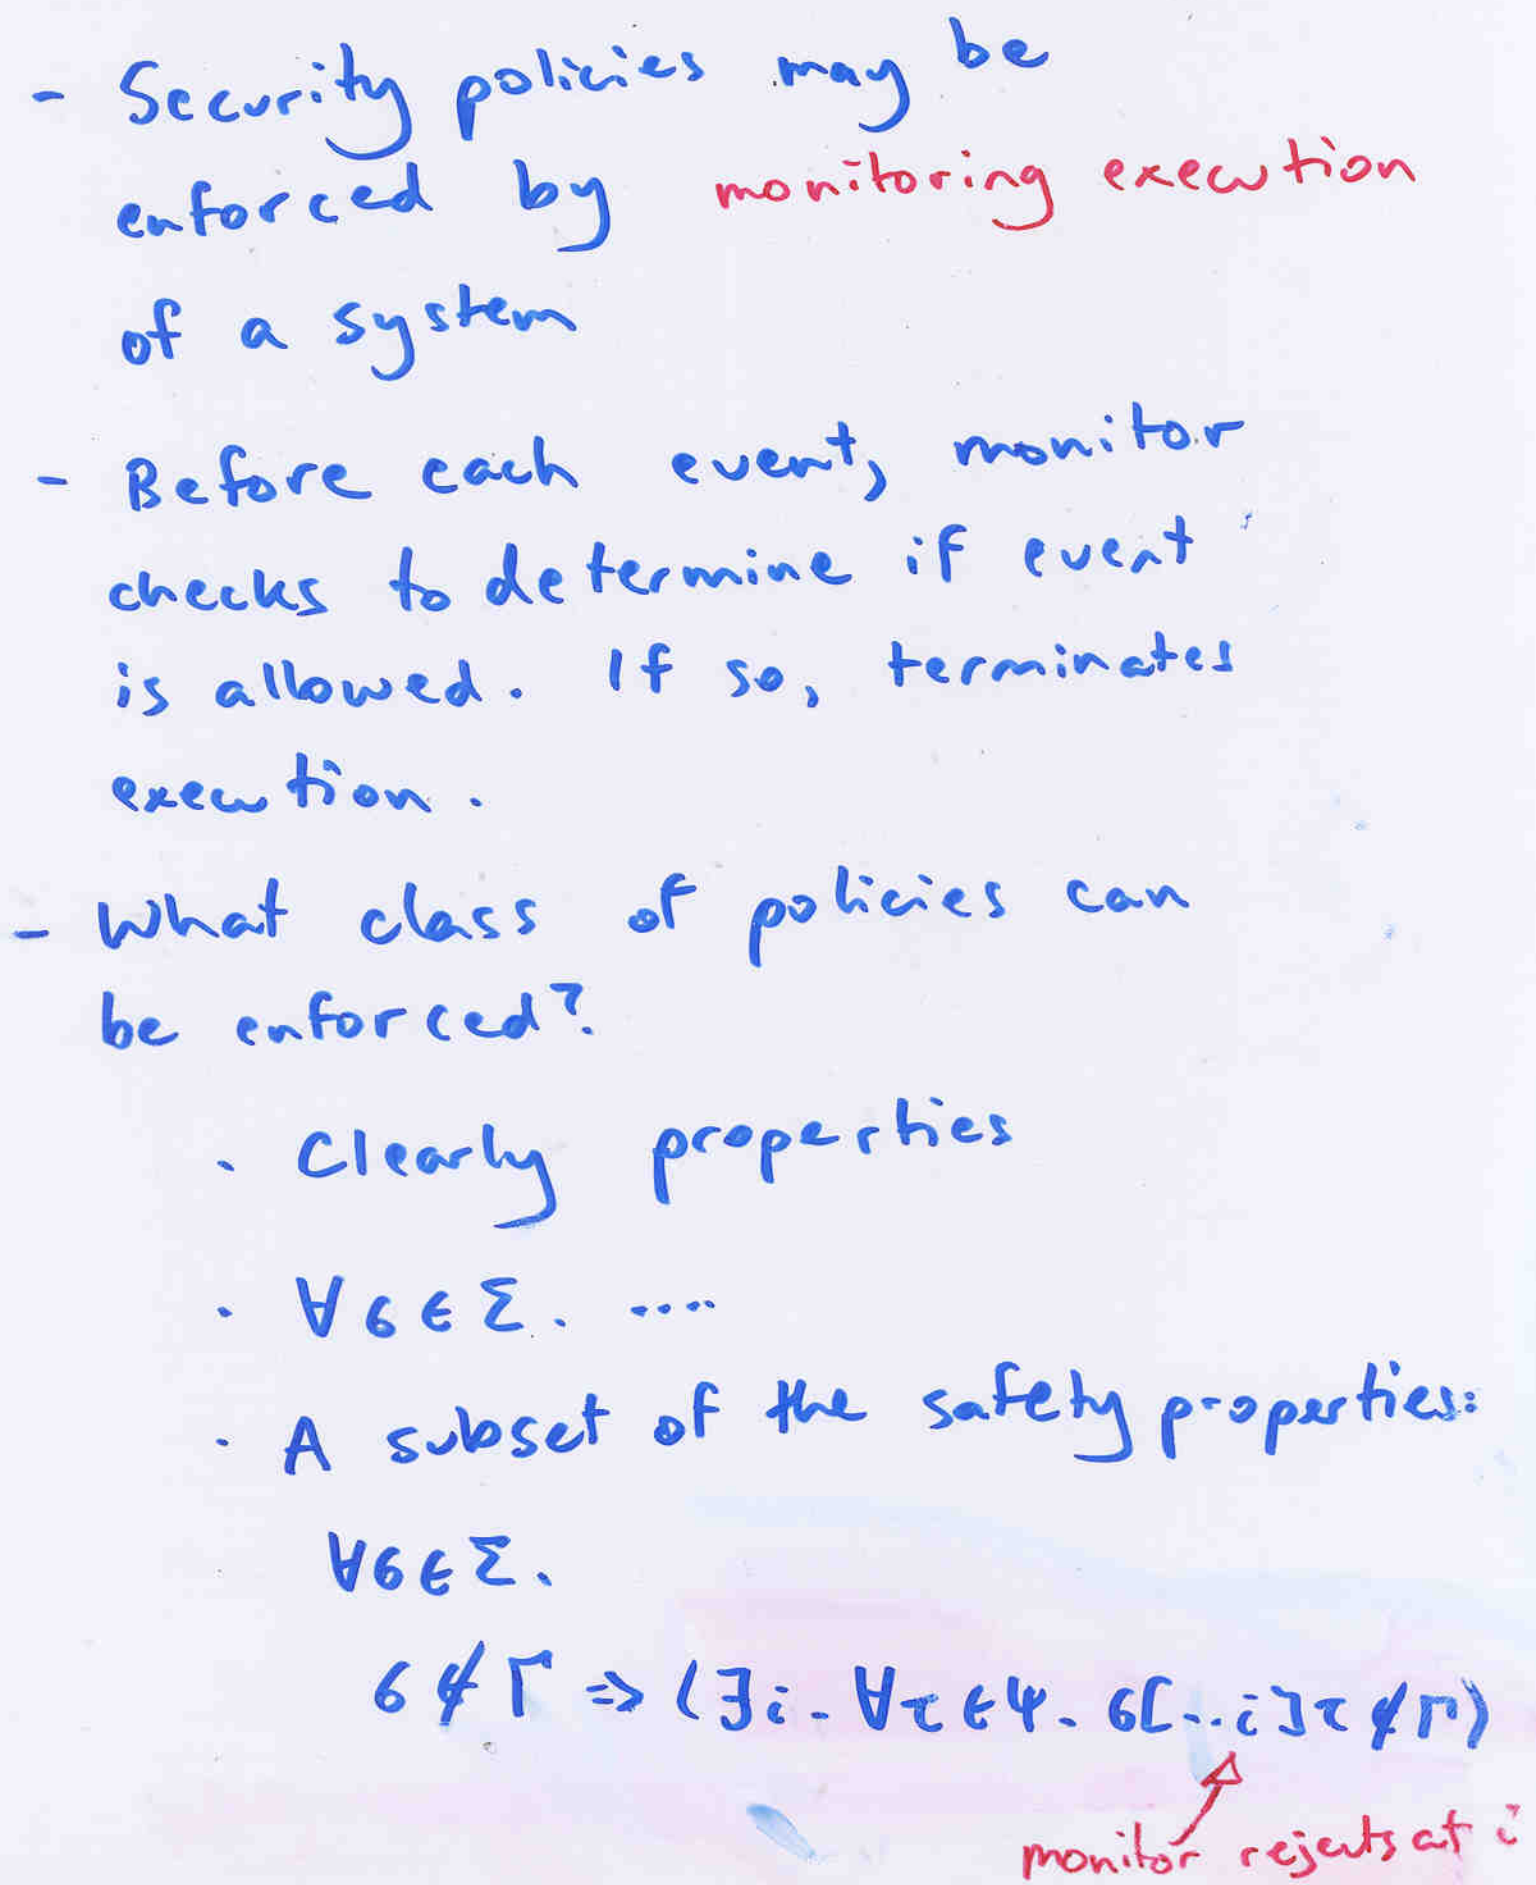 - Security policies may be
enforced by monitoring execution
of a system
- Before each event, monitor
checks to determine if event
is allowed. If so, terminates
execution.
- What class of policies can
be enforced?
· Clearly properties
· ∀σ∈Σ. ....
· A subset of the safety properties:
∀σ∈Σ.
σ∉Γ ⇒ (∃i. ∀τ∈Ψ. σ[..i]τ∉Γ)
monitor rejects at i